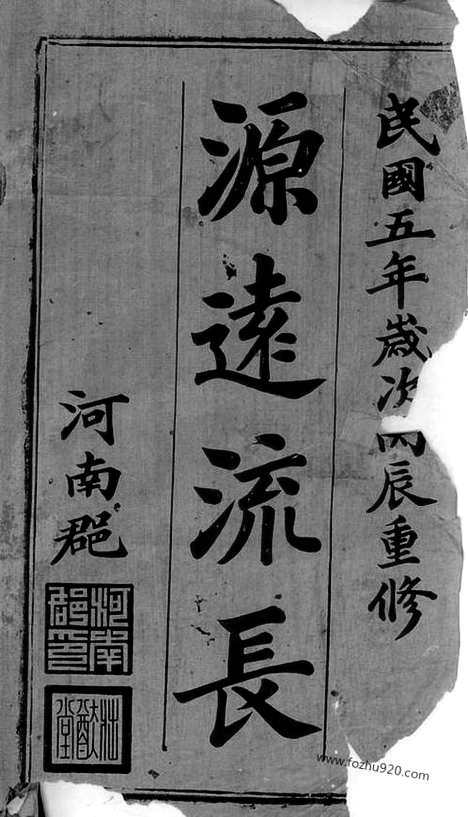 民國五年歲次丙辰重修
源遠流長
河南郡
河南郡印
堂
www.fozhu920.com